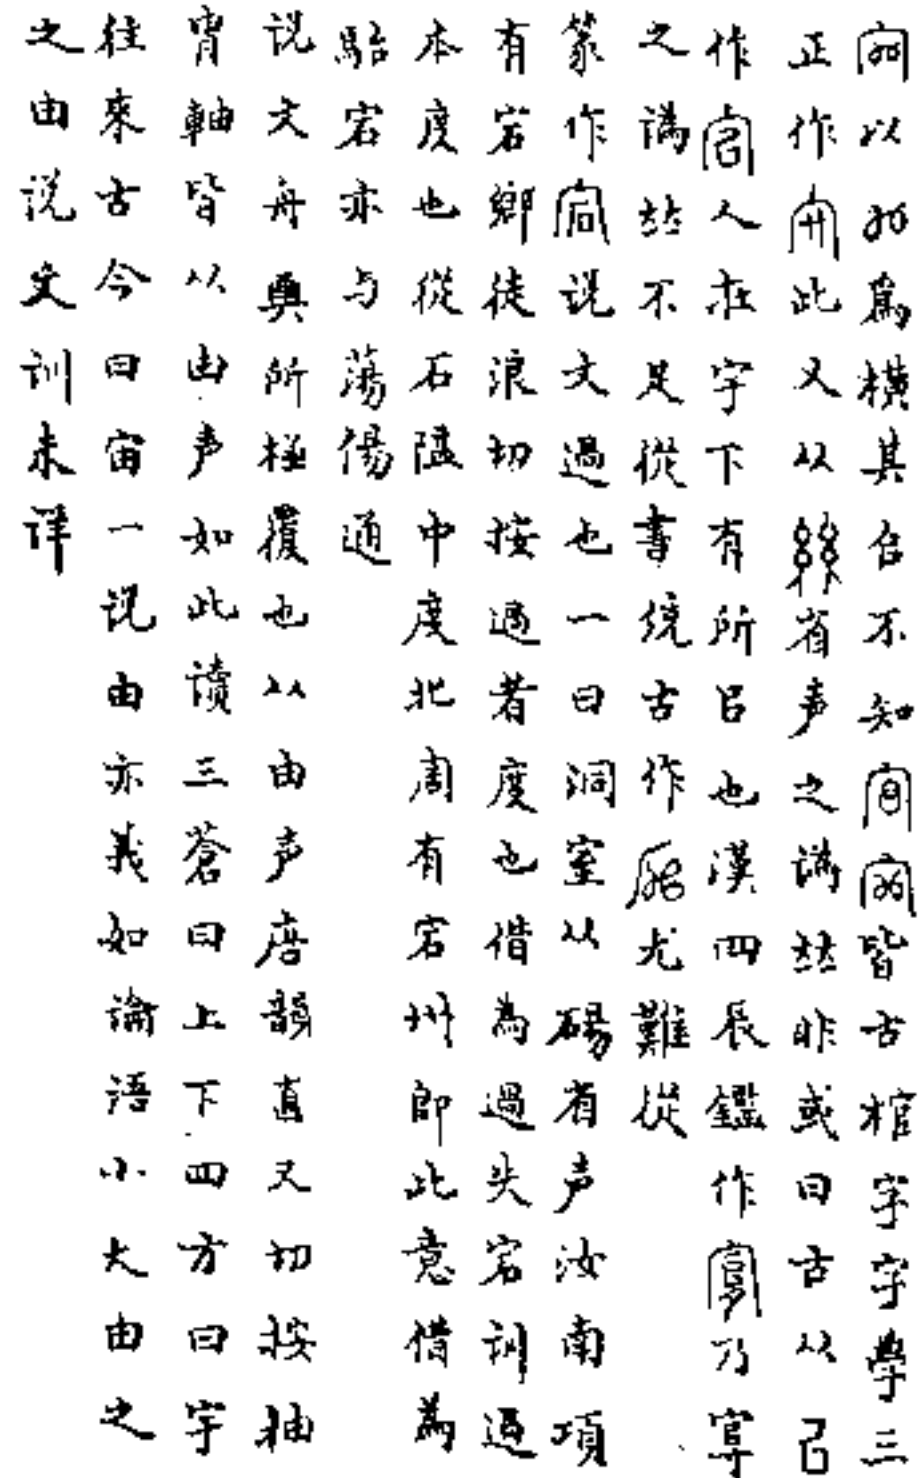 以為橫其合不知皆古棺字字學三
正作此又从省声之譌然非或曰古从吕
作人在宇下有所吕也漢四辰鑑作乃亭
之譌然不足從書統古作尤難從
篆作說文過也一曰洞室从碭省声汝南項
有宕鄉徒浪切按過者度也借為過失宕訓過
本度也從石隘中度北周有宕州即此意借為
駘宕亦与蕩傷通
说文舟輿所極覆也以由声唐韻直又切按抽
胄軸皆从由声如此讀三蒼曰上下四方曰宇
往來古今曰宙一说由亦義如論語小大由之
之由说文训未详